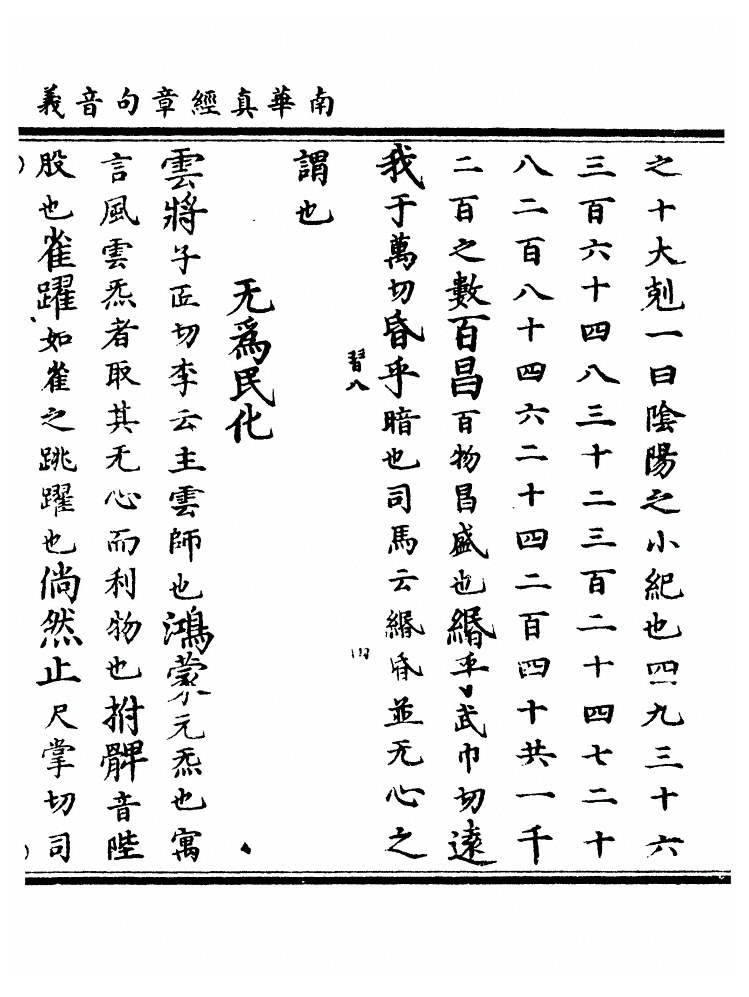 南華真經章句音義
之十大剋一曰陰陽之小紀也四九三十六
三百六十四八三十二三百二十四七二十
八二百八十四六二十四二百四十共一千
二百之數百昌百物昌盛也緡乎武巾切遠
我于萬切昏乎暗也司馬云緡昏並无心之
習八
謂也
无為民化
雲將子匠切李云主雲師也鴻蒙元炁也寓
言風雲炁者取其无心而利物也拊髀音陛
股也雀躍如雀之跳躍也倘然止尺掌切司